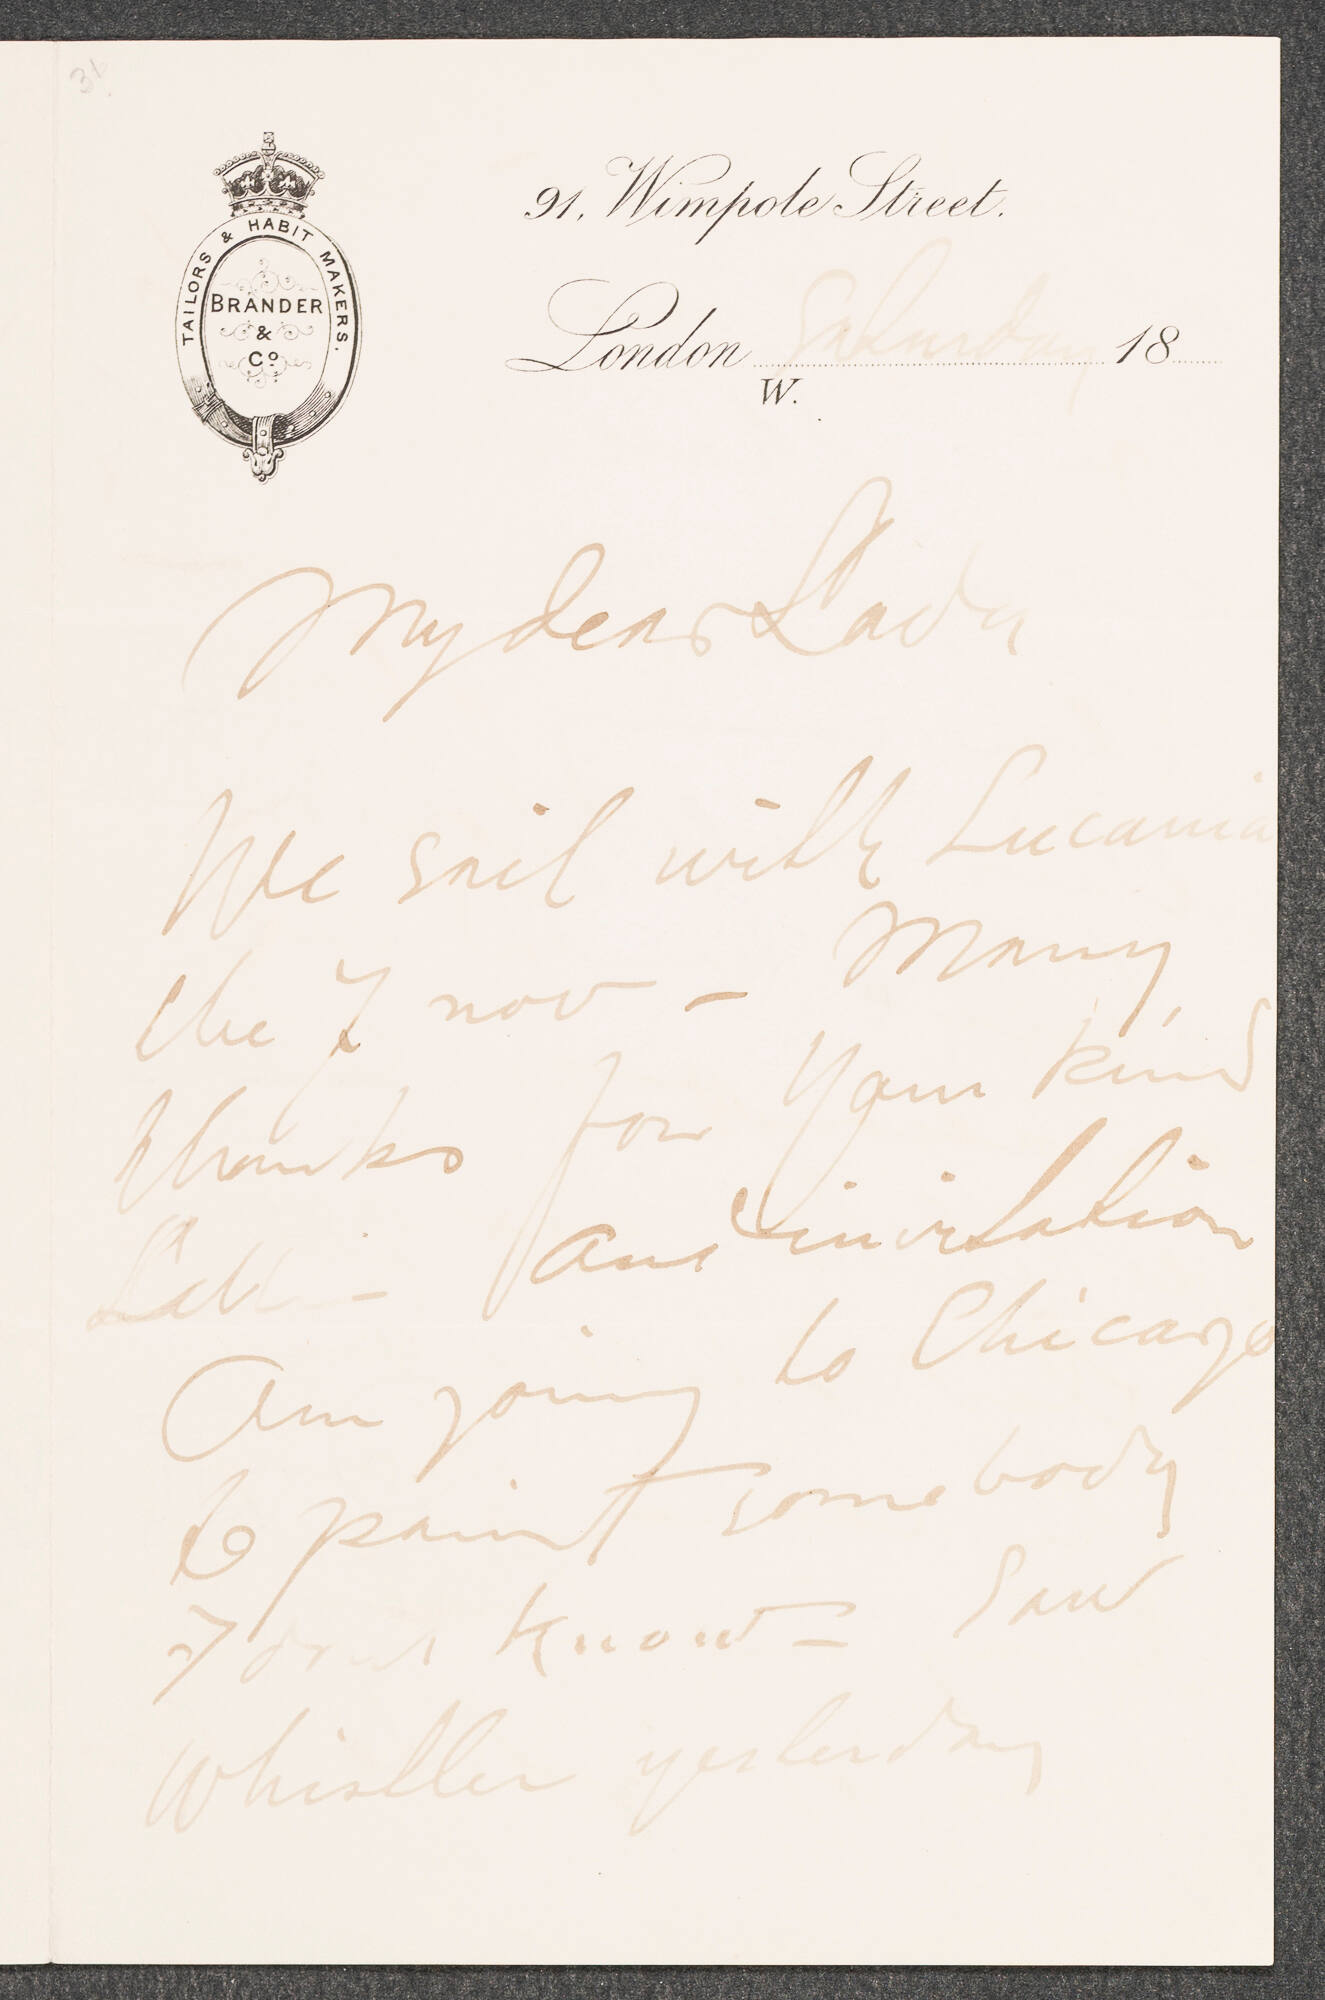 36
TAILORS & HABIT MAKERS.
BRANDER
&
Co
91, Wimpole Street.
London Saturday 18
W.
My dear Lady
We sail with Lucania
the 7 nov - Many
thanks for your kind
Letter - and invitation
Am going to Chicago
to paint somebody
I don't know - Saw
Whistler yesterday